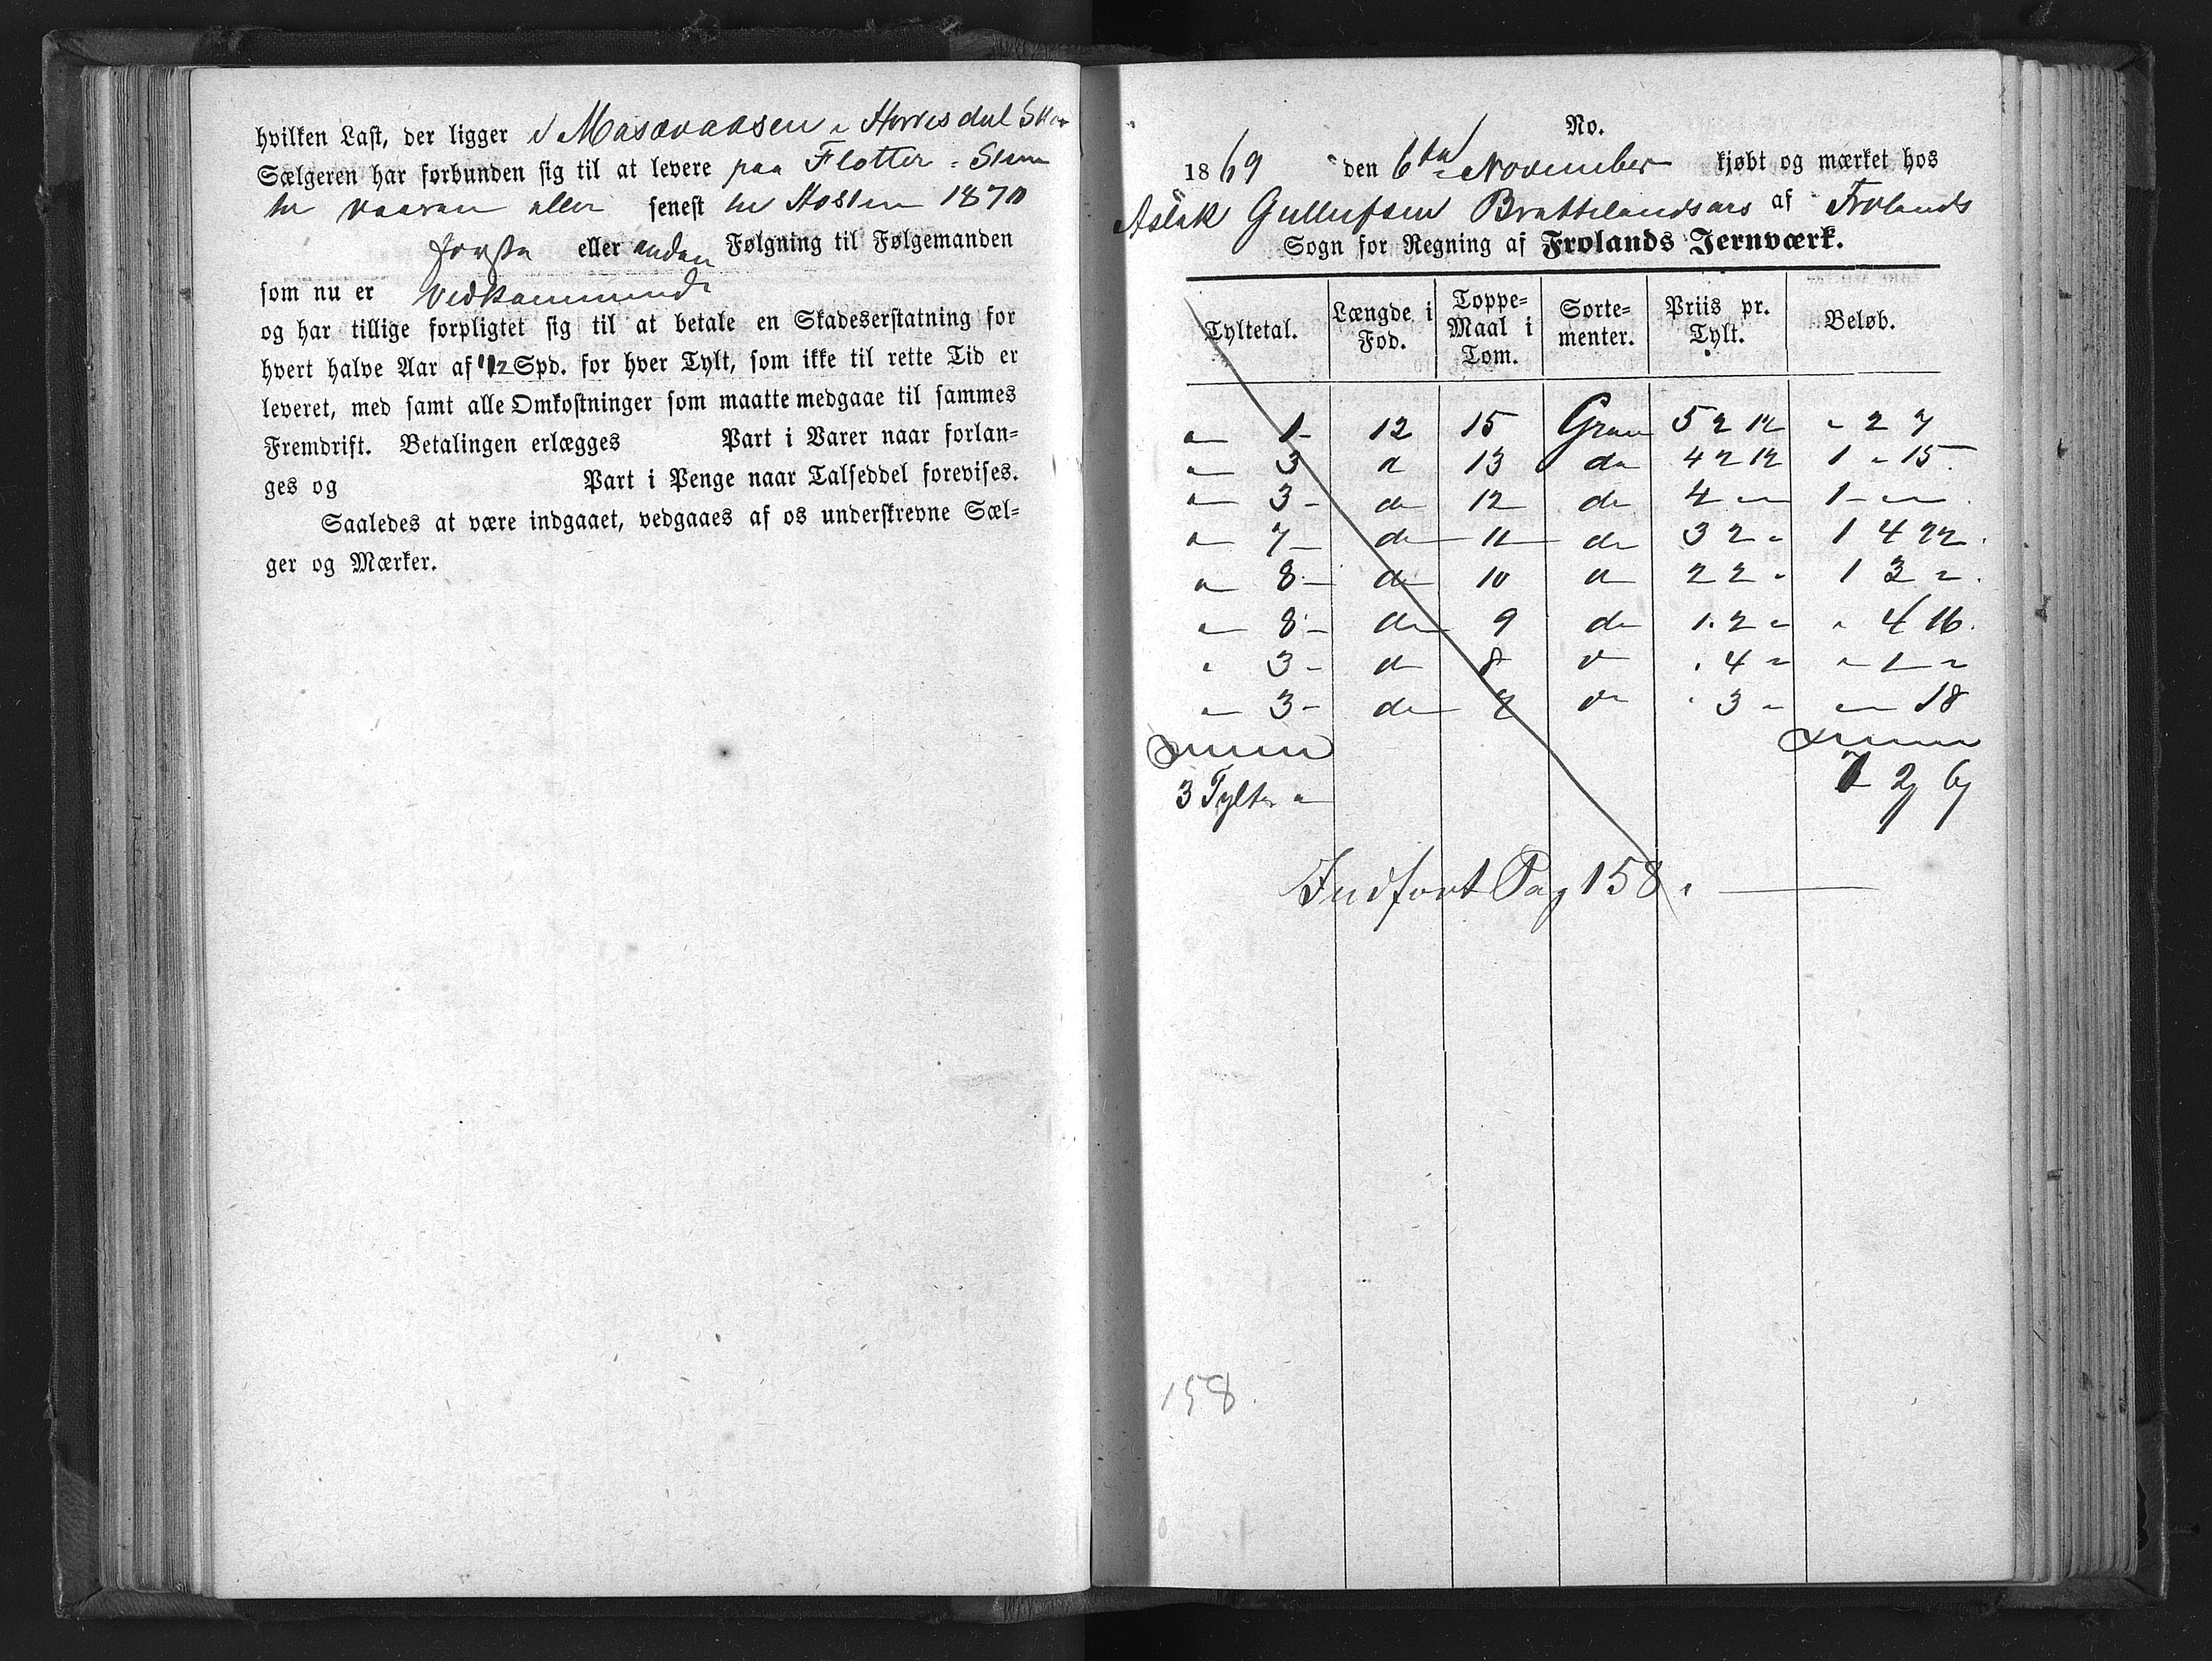 hvilken Last, der ligger i Masovaasen i Hovresdal
Sælgeren har forbunden sig til at levere paa Flotter i
te Vaaren eller senest te Hosten 1870
forste eller anden Følgning til Følgemanden
som nu er Vedkommende
og har tillige forpligtet sig til at betale en Skadeserstatning for
hvert halve Aar af 1/2 Spd. for hver Tylt, som ikke til rette Tid er
leveret, med samt alle Omkostninger som maatte medgaae til sammes
Fremdrift. Betalingen erlægges Part i Varer naar forlan=
ges og Part i Penge naar Talseddel forevises.
Saaledes at være indgaaet, vedgaaes af os underskrevne Sæl=
ger og Mærker.
No.
1869 den 6te November kjøbt og mærket hos
Aslak Gullufsen Brattelandsaas af Frolands
Sogn for Regning af Frolands Jernværk.
Tyltetal. Længde i Fod. Toppe=Maal i Tom. Sorte=menter. Priis pr. Tylt. Beløb.
" 1 - 12 15 Gran 5 2 12 " 2 7
" 3 d 13 do 4 2 12 1 " 15
" 3 - do 12 do 4 " " 1 - " "
" 7 - do 11 do 3 2 " 1 4 22
" 8 - do 10 d 2 2 " 1 3 "
" 8 - do 9 do 1 2 " " 4 16
" 3 - d 8 d " 4 " " 1 "
" 3 - do 7 d " 3 " " " 18
Summa Summa
3 Tylter " 7 2 6
Indført Pag 158.
158.